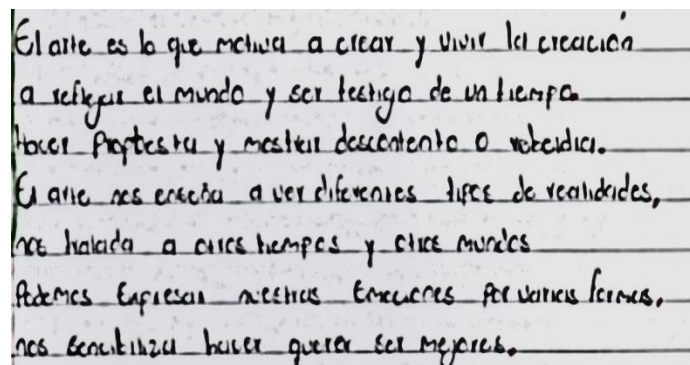 El arte es lo que motiva a crear y vivir la creación
a reflejar el mundo y ser testigo de un tiempo.
Hacer Proptesta y mostrar descontento o rebeldia.
El arte nos enseña a ver diferentes tipos de realidades,
nos tralada a otros tiempos y otros mundos
Podemos Expresar nuestras Emociones Por varias formas,
nos sencibiliza hacer querer ser mejores.